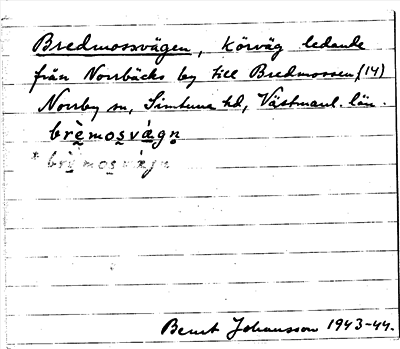 Bredmossvägen, körväg ledande
från Norrbäcks by till Bredmossen, (14)
Norrby sn, Simtuna hd, Västmanl. län.
brèmosvágn
* brỳmosvágn
Bernt Johansson 1943-44.